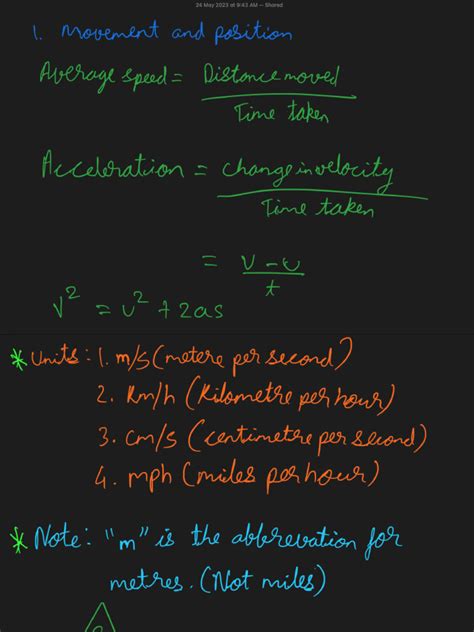 24 May 2023 at 9:43 AM — Shared
1. Movement and position
Average speed = Distance moved
Time taken
Acceleration = change in velocity
Time taken
= v - u
t
v² = u² + 2as
* Units: 1. m/s (metere per second)
2. Km/h (Kilometre per hour)
3. cm/s (centimetre per second)
4. mph (miles per hour)
* Note: "m" is the abbrevation for
metres. (Not miles)